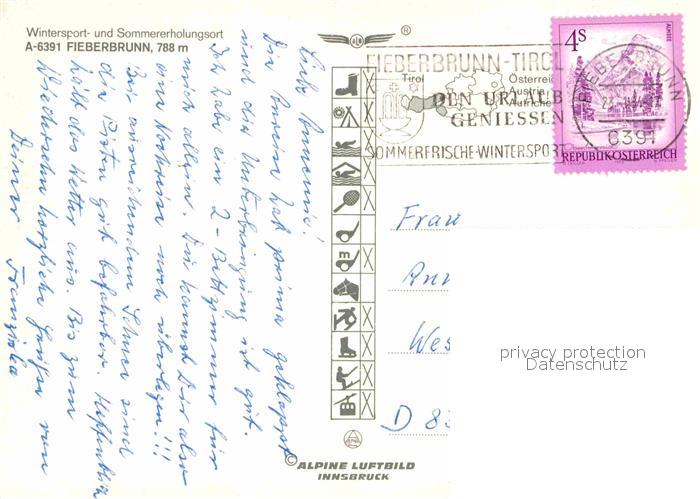 Wintersport- und Sommererholungsort
A-6391 FIEBERBRUNN, 788 m
®
FIEBERBRUNN-TIROL
Tirol
Österreich
Austria
Autriche
DEN URLAUB
GENIESSEN
SOMMERFRISCHE-WINTERSPORT
4S
ALMSEE
FIEBERBRUNN
6391
REPUBLIK ÖSTERREICH
Liebe Annemie!
Die Anreise hat prima geklappt
und die Unterbringung ist gut.
Ich hab ein 2-Bettzimmer für
mich allein. Du kannst Dir also
eine Nachreise noch überlegen!!!
Bei ausreichendem Schnee sind
die Pisten gut befahrbar. Hoffentlich
hält das Wetter aus. Bis zum
Wiedersehen herzliche Grüße von
Deiner Franziska
m
Frau
Ann
Wes
D 83
privacy protection
Datenschutz
© ALPINE LUFTBILD
INNSBRUCK